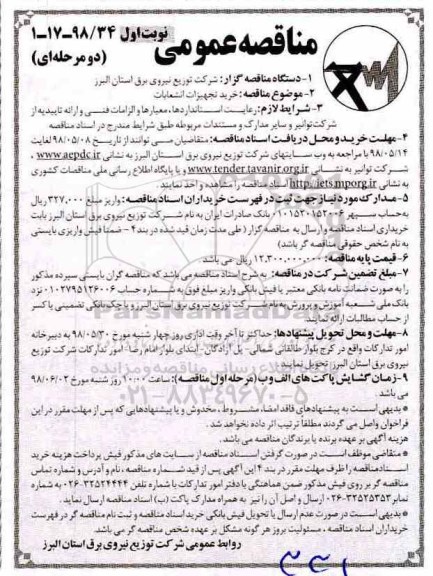 نوبت اول ۹۸/۳۴-۱۷-۱
مناقصه عمومی (دو مرحله‌ای)
۱- دستگاه مناقصه گزار: شرکت توزیع نیروی برق استان البرز
۲- موضوع مناقصه: خرید تجهیزات انشعابات
۳- شرایط لازم: رعایت استانداردها، معیارها و الزامات فنی و ارائه تاییدیه از
شرکت توانیر و سایر مدارک و مستندات مربوطه طبق شرایط مندرج در اسناد مناقصه
۴- مهلت خرید و محل دریافت اسناد مناقصه: متقاضیان می توانند از تاریخ ۹۸/۰۵/۰۸ لغایت
۹۸/۰۵/۱۴ با مراجعه به وب سایتهای شرکت توزیع نیروی برق استان البرز به نشانی www.aepdc.ir ،
شرکت توانیر به نشانی www.tender.tavanir.org.ir و یا پایگاه اطلاع رسانی ملی مناقصات کشوری
به نشانی http://iets.mporg.ir اسناد مناقصه را مشاهده و اخذ نمایند.
۵- مدارک مورد نیاز جهت ثبت در فهرست خریداران اسناد مناقصه: واریز مبلغ ۳۲۷,۰۰۰ ریال
به حساب سپهر بانک صادرات ایران به نام شرکت توزیع نیروی برق استان البرز بابت
خریداری اسناد مناقصه و ارسال به مناقصه گزار (طی مدت زمان قید شده در بند ۴ - ضمنا فیش واریزی بایستی
به نام شخص حقوقی مناقصه گر باشد)
۶- قیمت پایه مناقصه: ۱۲,۳۰۰,۰۰۰,۰۰۰ ریال می باشد
۷- مبلغ تضمین شرکت در مناقصه: به شرح اسناد مناقصه می باشد که مناقصه گران بایستی سپرده مذکور
را به صورت ضمانت نامه بانکی معتبر یا فیش بانکی واریز مبلغ فوق به شماره حساب ۰۱۰۲۷۹۵۱۲۶۰۰۶ نزد
بانک ملی شعبه آموزش و پرورش به نام شرکت توزیع نیروی برق استان البرز و یا چک بانکی تضمینی یا کسر
از حساب مطالبات ارائه نمایند.
۸- مهلت و محل تحویل پیشنهادها: حداکثر تا آخر وقت اداری روز چهارشنبه مورخ ۹۸/۰۵/۳۰ به دبیرخانه
امور تدارکات واقع در کرج بلوار طالقانی شمالی - پل آزادگان - ابتدای بلوار امام رضا - امور تدارکات شرکت توزیع
نیروی برق استان البرز تحویل نمایند.
۹- زمان گشایش پاکت های الف و ب (مرحله اول مناقصه): ساعت ۱۰:۰۰ روز شنبه مورخ ۹۸/۰۶/۰۲
می باشد.
* بدیهی است به پیشنهادهای فاقد امضا، مشروط، مخدوش و یا پیشنهادهایی که پس از مهلت مقرر در این
فراخوان واصل می گردند مطلقا ترتیب اثر داده نخواهد شد.
هزینه آگهی بر عهده برنده یا برندگان مناقصه می باشد.
* متقاضی موظف است در صورت گرفتن اسناد مناقصه از سایت های مذکور فیش پرداخت هزینه خرید
اسناد مناقصه را ظرف مهلت مقرر در بند ۴ این آگهی پس از قید شماره مناقصه، نام و آدرس و شماره تماس
مناقصه گر بر روی فیش مذکور ضمن هماهنگی با دفتر امور تدارکات با شماره تلفن ۳۲۵۲۴۴۴۴-۰۲۶ به شماره
نمابر ۳۲۵۲۵۳۵۳-۰۲۶ ارسال و اصل آن را نیز به همراه مدارک پاکت (ب) اسناد مناقصه ارسال نماید.
* بدیهی است در صورت عدم ارسال یا تحویل فیش بانکی خرید اسناد مناقصه و ثبت نام مناقصه گر در فهرست
خریداران اسناد مناقصه، مسئولیت بروز هر گونه مشکل بر عهده شخص مناقصه گر می باشد.
روابط عمومی شرکت توزیع نیروی برق استان البرز
۰۲۱-۸۸۳۴۹۶۷۰-۵